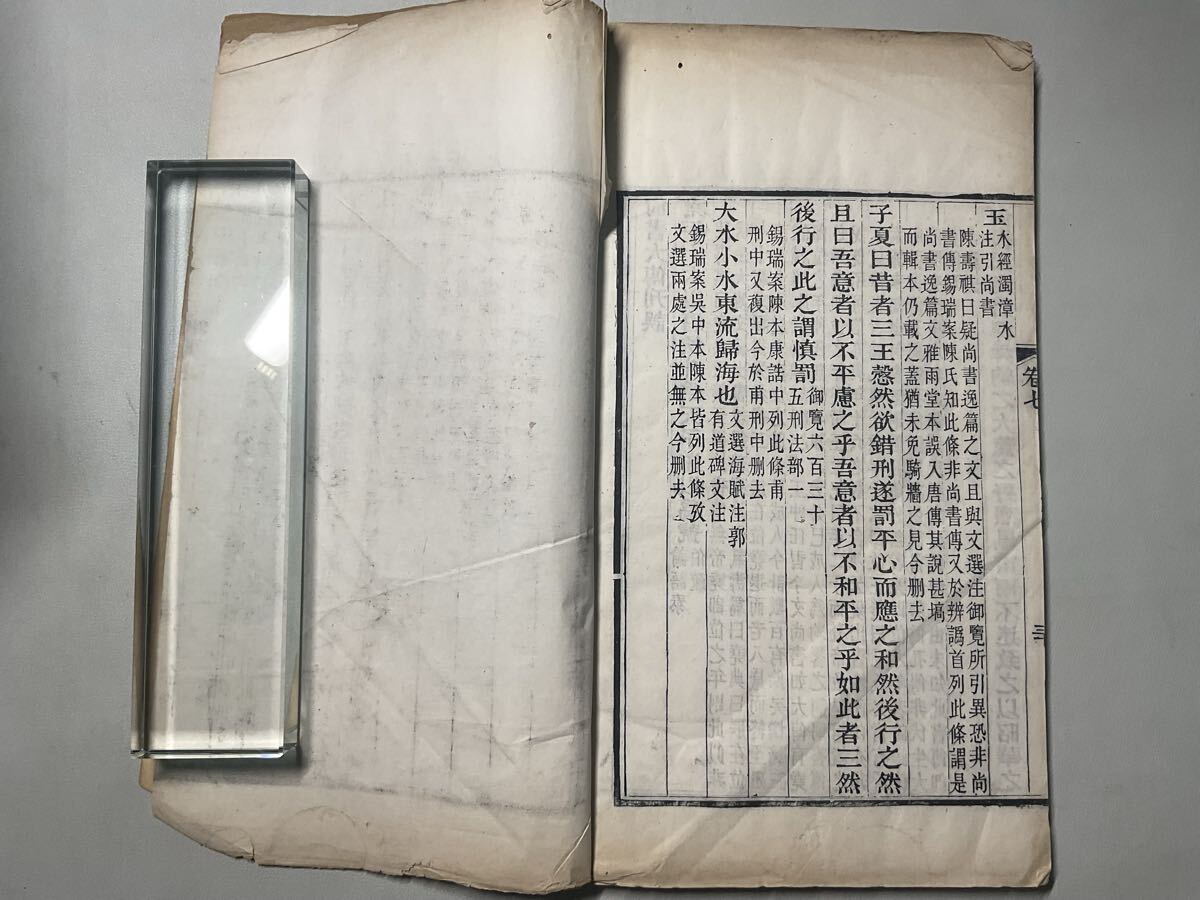 卷七
三
玉水經濁漳水
注引尚書
陳壽祺曰疑尚書逸篇之文且與文選注御覽所引異恐非尚
書傳錫瑞案陳氏知此條非尚書傳又於辨譌首列此條謂是
尚書逸篇文雅雨堂本誤入唐傳其說甚塙
而輯本仍載之蓋猶未免騎牆之見今刪去
子夏曰昔者三王愨然欲錯刑遂罰平心而應之和然後行之然
且曰吾意者以不平慮之乎吾意者以不和平之乎如此者三然
後行之此之謂慎罰御覽六百三十
五刑法部一
錫瑞案陳本康誥中列此條甫
刑中又複出今於甫刑中刪去
大水小水東流歸海也文選海賦注郭
有道碑文注
錫瑞案吳中本陳本皆列此條攷
文選兩處之注並無之今刪去